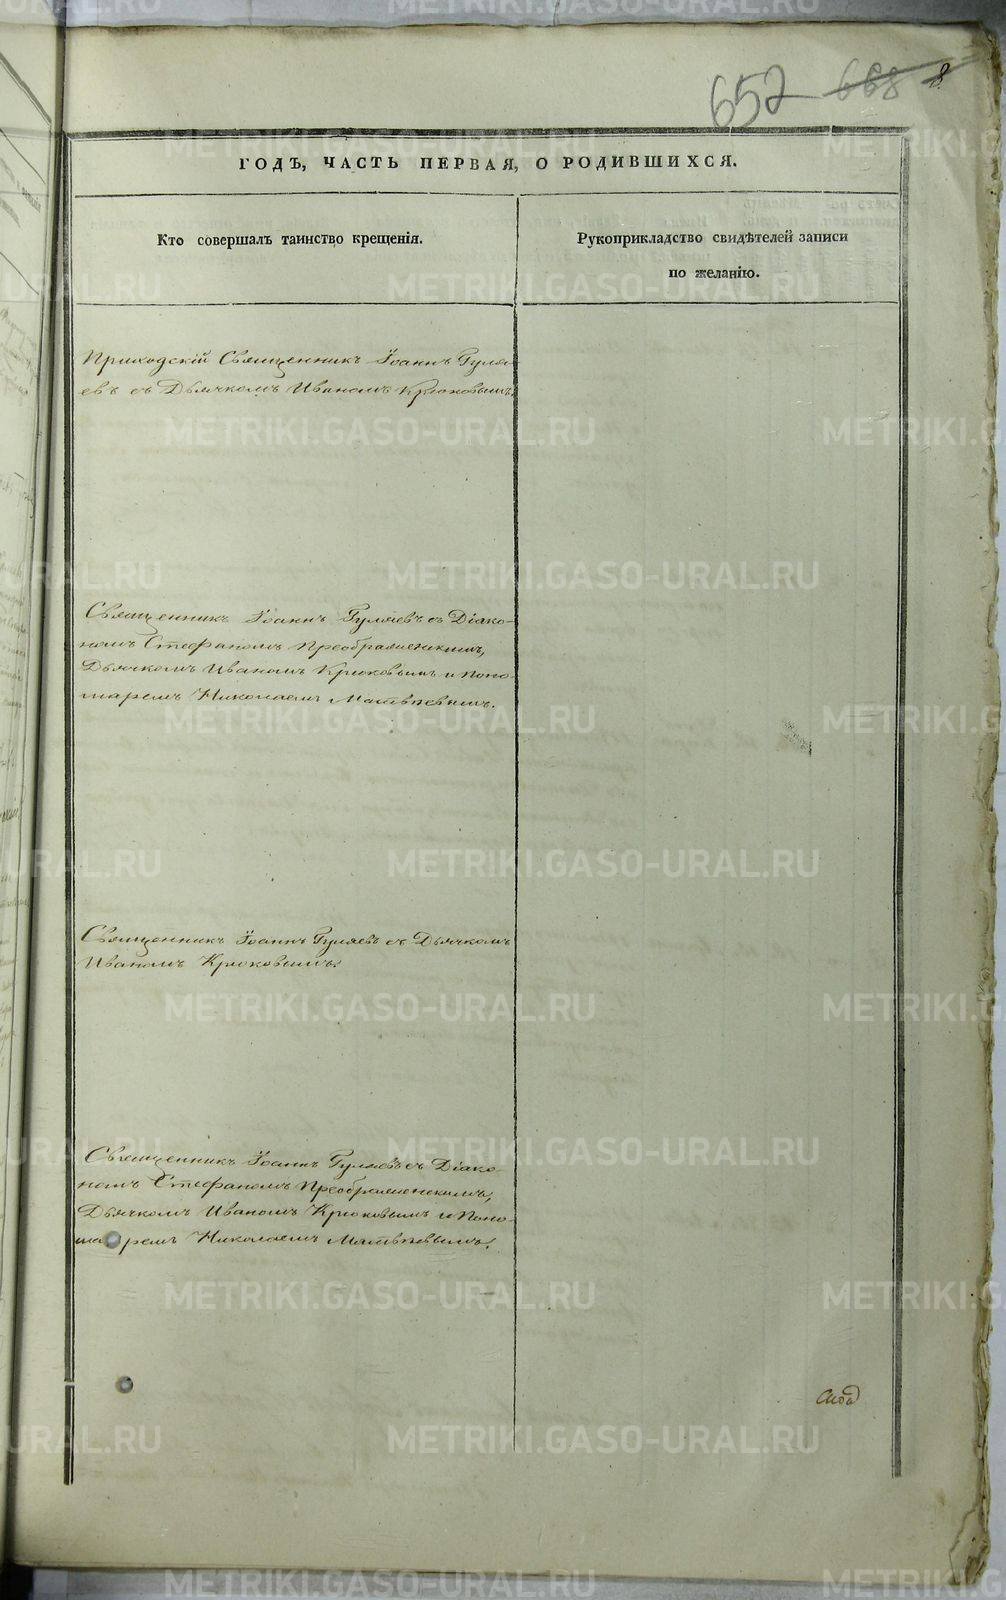 652 668 8
ГОДЪ, ЧАСТЬ ПЕРВАЯ, О РОДИВШИХСЯ.
Кто совершалъ таинство крещенія.
Рукоприкладство свидѣтелей записи
по желанію.
Приходскій Священникъ Іоаннъ Гуля-
евъ съ Дьячкомъ Иваномъ Крюковымъ.
Священникъ Іоаннъ Гуляевъ съ Діако-
номъ Стефаномъ Преображенскимъ,
Дьячкомъ Иваномъ Крюковымъ и Поно-
маремъ Николаемъ Матвѣевымъ.
Священникъ Іоаннъ Гуляевъ съ Дьячкомъ
Иваномъ Крюковымъ.
Священникъ Іоаннъ Гуляевъ съ Діако-
номъ Стефаномъ Преображенскимъ,
Дьячкомъ Иваномъ Крюковымъ и Поно-
маремъ Николаемъ Матвѣевымъ.
METRIKI.GASO-URAL.RU